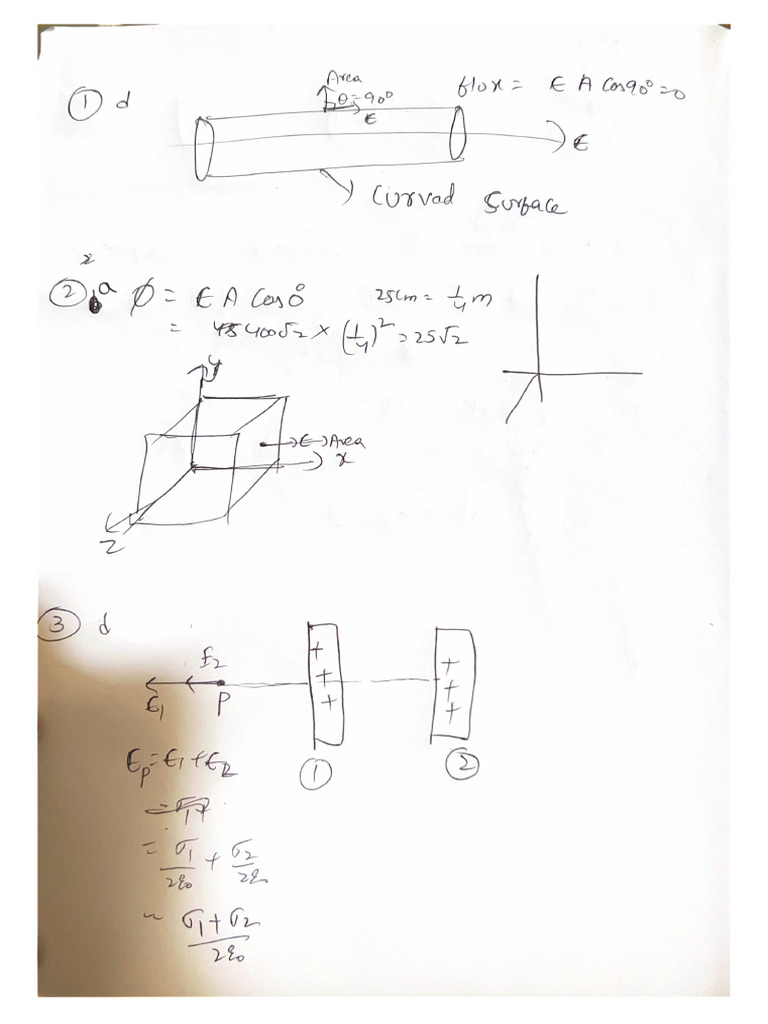 Area
① d θ=90° flux = E A Cos90°=0
E
E
Curvad Surface
② a Ø = E A Cos0° 25cm = 1/4 m
= 400√2 × (1/4)² = 25√2
y
E→Area
x
z
③ d
E2
E1 P
+ + +
+ + +
Ep = E1 + E2
① ②
= σ1/2ε0 + σ2/2ε0
= σ1+σ2/2ε0